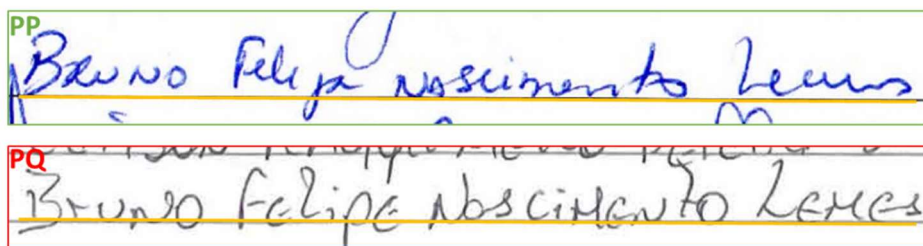 PP
Bruno Felipe Nascimento Lemes
PQ
Bruno Felipe Nascimento Lemes